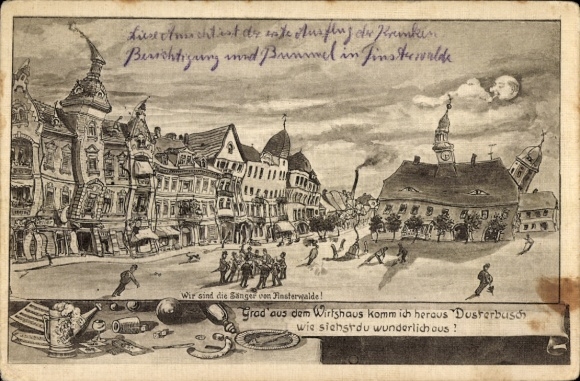 Diese Ansicht ist der erste Ausflug der Kranken
Besichtigung und Bummel in Finsterwalde
Wir sind die Sänger von Finsterwalde!
Grad' aus dem Wirtshaus komm ich heraus Dusterbusch
wie siehst du wunderlich aus!